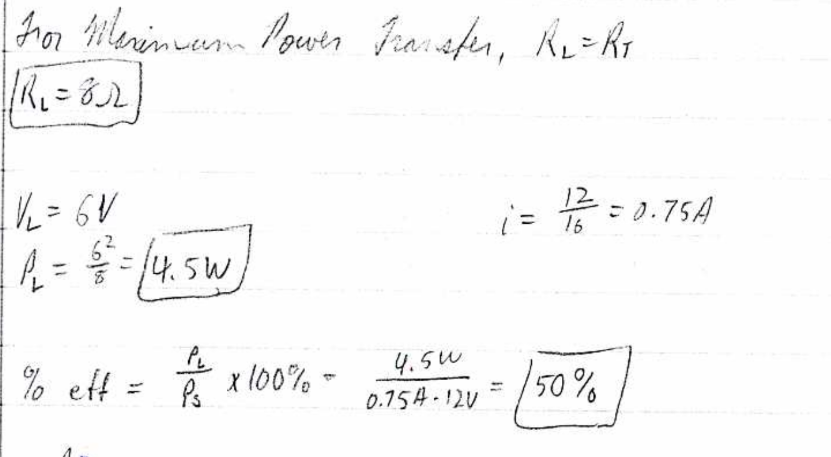 For Maximum Power Transfer, RL = RT
RL = 8Ω
VL = 6V
i = 12/16 = 0.75A
PL = 6²/8 = 4.5W
% eff = PL/Ps x 100% = 4.5W/0.75A·12V = 50%